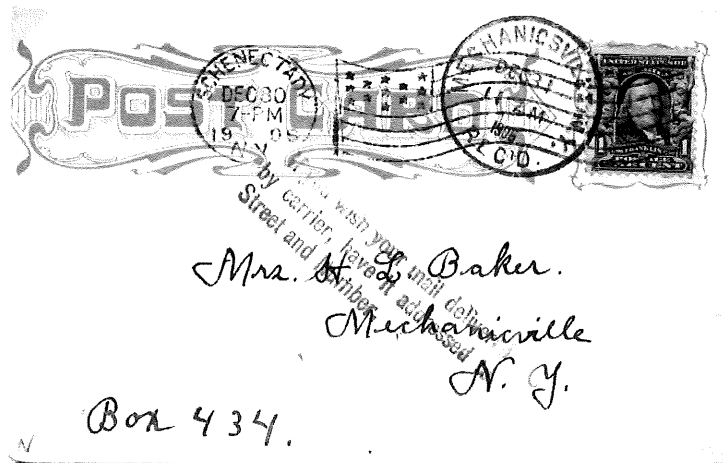 POST CARD
SCHENECTADY
DEC 30
7-PM
19 05
N.Y.
MECHANICSVILLE N.Y.
DEC 31
AM
1905
REC'D.
UNITED STATES OF
FRANKLIN
1 1
wish your mail delivered
by carrier, have it addressed
Street and Number
Mrs. H. L. Baker.
Mechanicville
N. Y.
Box 434.
N